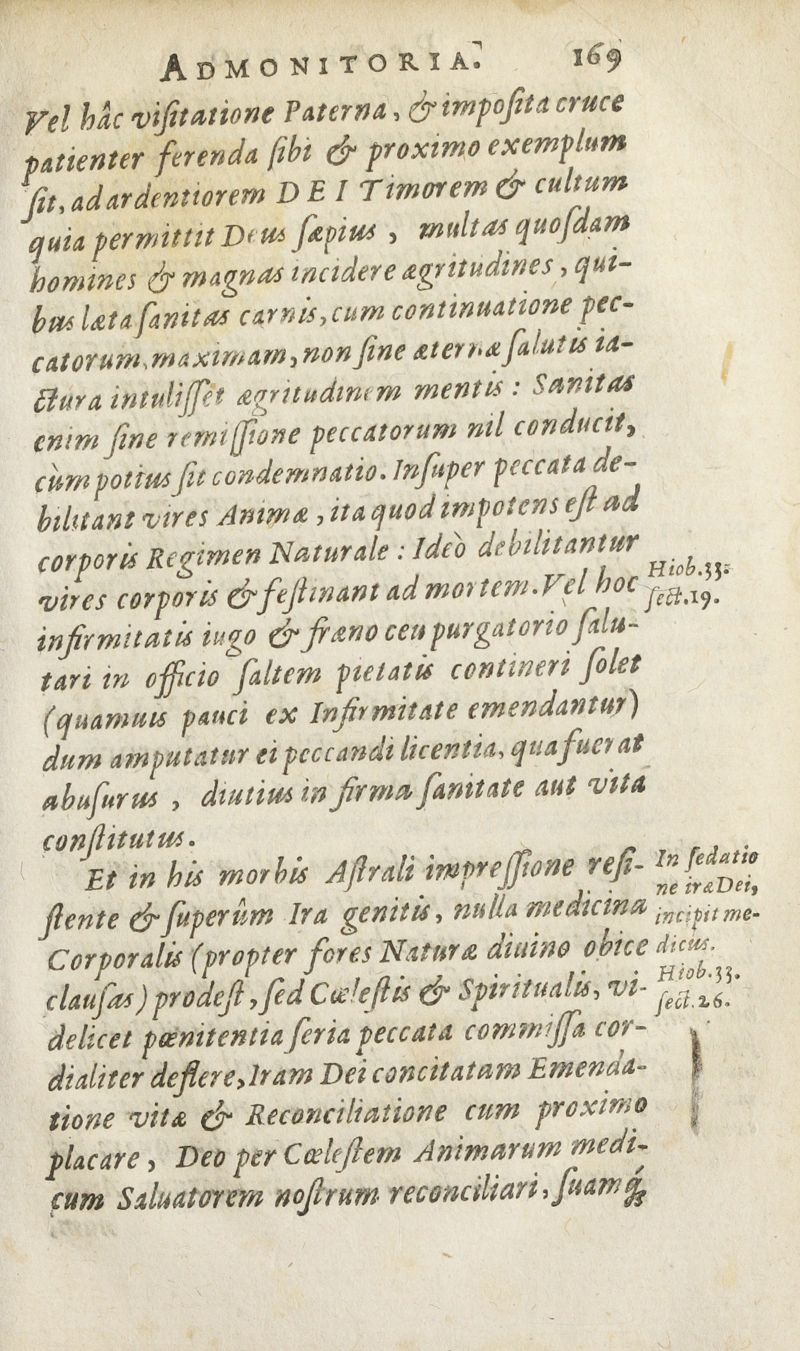 ADMONITORIA. 169
Vel hâc visitatione Paterna, & imposita cruce
patienter ferenda sibi & proximo exemplum
sit, ad ardentiorem DEI Timorem & cultum
quia permittit Deus sæpius, multas quosdam
homines & magnas incidere ægritudines, qui-
bus læta sanitas carnis, cum continuatione pec-
catorum, maximam, non sine æternæ salutis ia-
ctura intulisset ægritudinem mentis: Sanitas
enim sine remissione peccatorum nil conducit,
cùm potius sit condemnatio. Insuper peccata de-
bilitant vires Animæ, ita quod impotens est ad
corporis Regimen Naturale: Ideò debilitantur
vires corporis & festinant ad mortem. Vel hoc
Hiob.33.
sect.19.
infirmitatis iugo & fræno ceu purgatorio salu-
tari in officio saltem pietatis contineri solet
(quamuis pauci ex Infirmitate emendantur)
dum amputatur ei peccandi licentia, qua fuerat
abusurus, diutius in firma sanitate aut vita
constitutus.
Et in his morbis Astrali impressione resi-
stente & superûm Ira genitis, nulla medicina
Corporalis (propter fores Naturæ diuino obice
clausas) prodest, sed Cœlestis & Spiritualis, vi-
In sedatio
ne iræ Dei,
incipit me-
dicus.
Hiob.33.
sect.26.
delicet pœnitentia seria peccata commissa cor-
dialiter deflere, Iram Dei concitatam Emenda-
tione vitæ & Reconciliatione cum proximo
placare, Deo per Cœlestem Animarum medi-
cum Saluatorem nostrum reconciliari, suamq́;